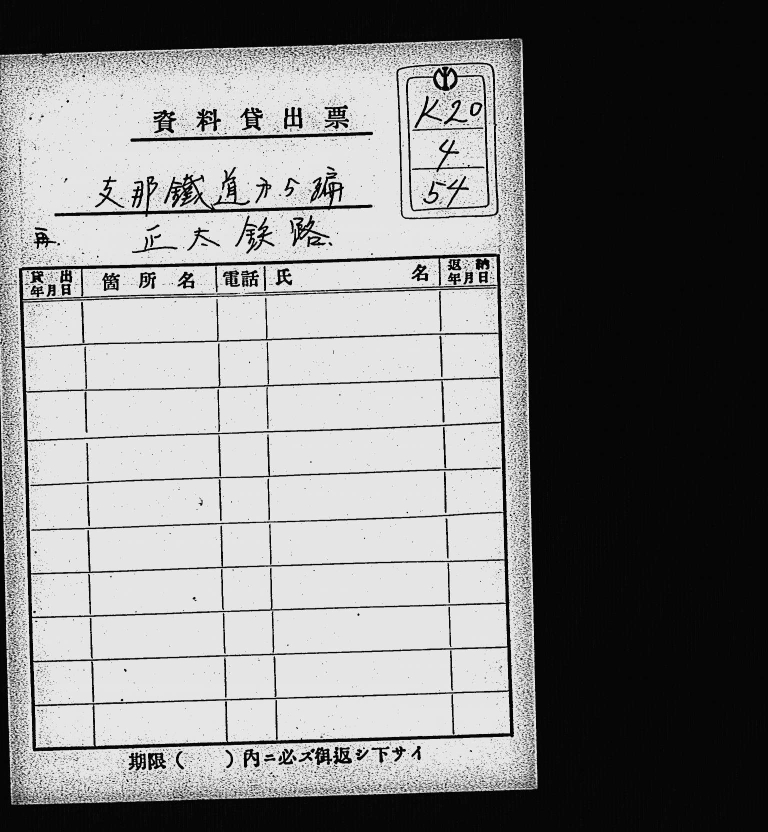 資料貸出票
K20
4
54
支那鐵道第5編
再. 正太鉄路.
貸出年月日 箇所名 電話 氏名 返納年月日
期限（　　）内ニ必ズ御返シ下サイ